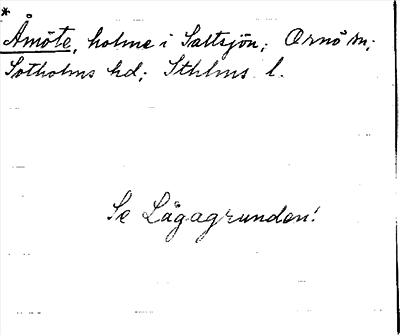 *
Åmöte, holme i Saltsjön; Ornö sn;
Sotholms hd; Sthlms l.
Se Lågagrunden!